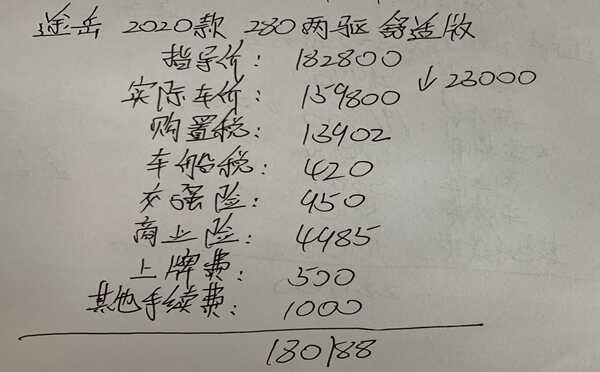 途岳 2020款 280两驱 舒适版
指导价: 182800
实际车价: 159800 ↓23000
购置税: 13902
车船税: 420
交强险: 950
商业险: 4485
上牌费: 500
其他手续费: 1000
180188